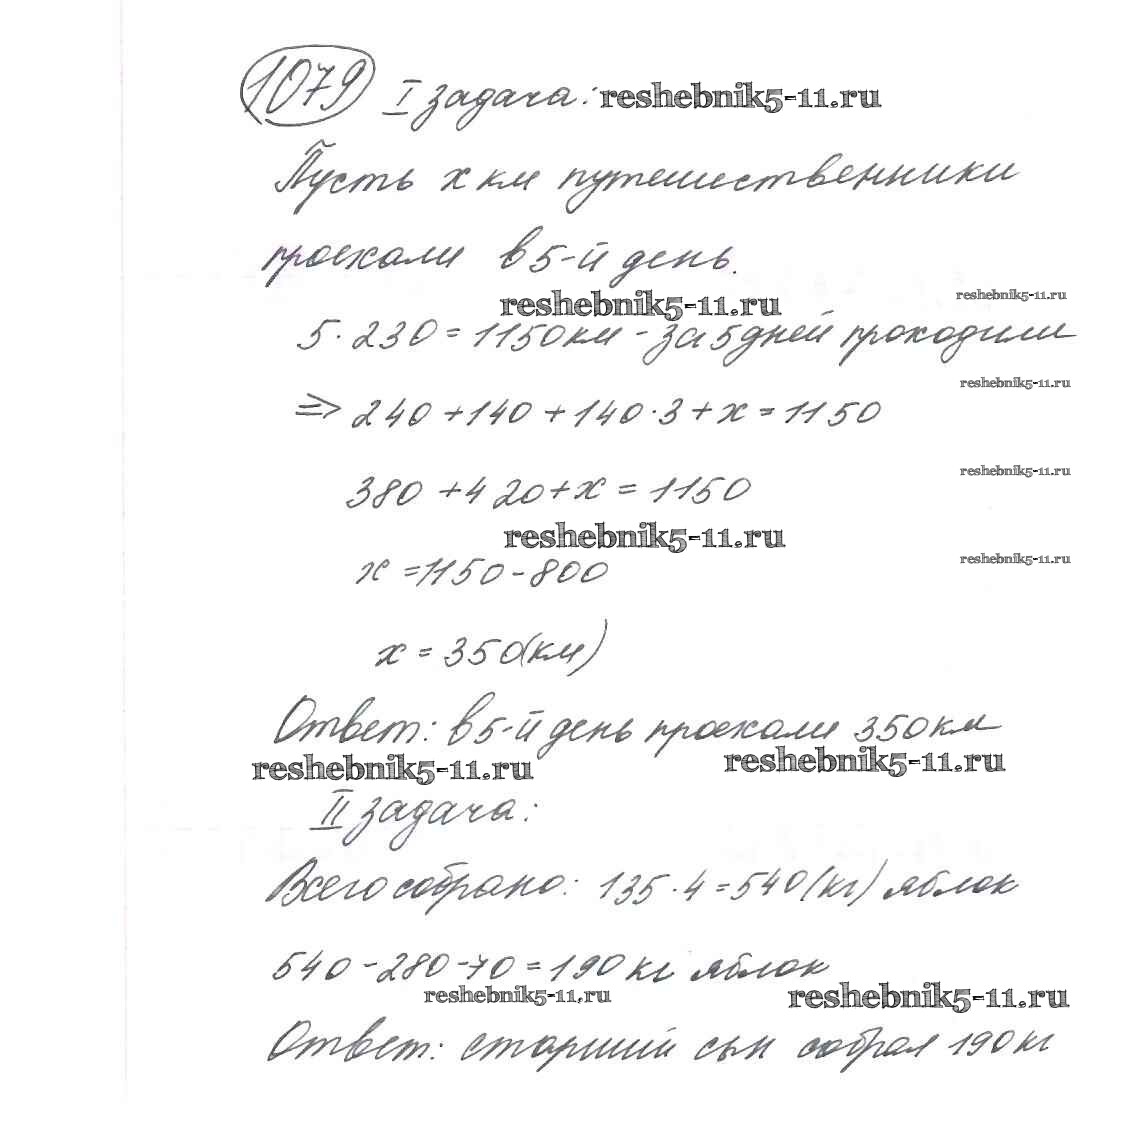 1079 I задача: reshebnik5-11.ru
Пусть x км путешественники
проехали в 5-й день.
reshebnik5-11.ru
reshebnik5-11.ru
5·230=1150км - за 5 дней проходили
reshebnik5-11.ru
=> 240+140+140·3+x=1150
reshebnik5-11.ru
380+420+x=1150
reshebnik5-11.ru
reshebnik5-11.ru
x=1150-800
x=350(км)
Ответ: в 5-й день проехали 350км
reshebnik5-11.ru reshebnik5-11.ru
II задача:
Всего собрано: 135·4=540(кг) яблок
540-280-70=190 кг яблок
reshebnik5-11.ru reshebnik5-11.ru
Ответ: старший сын собрал 190кг